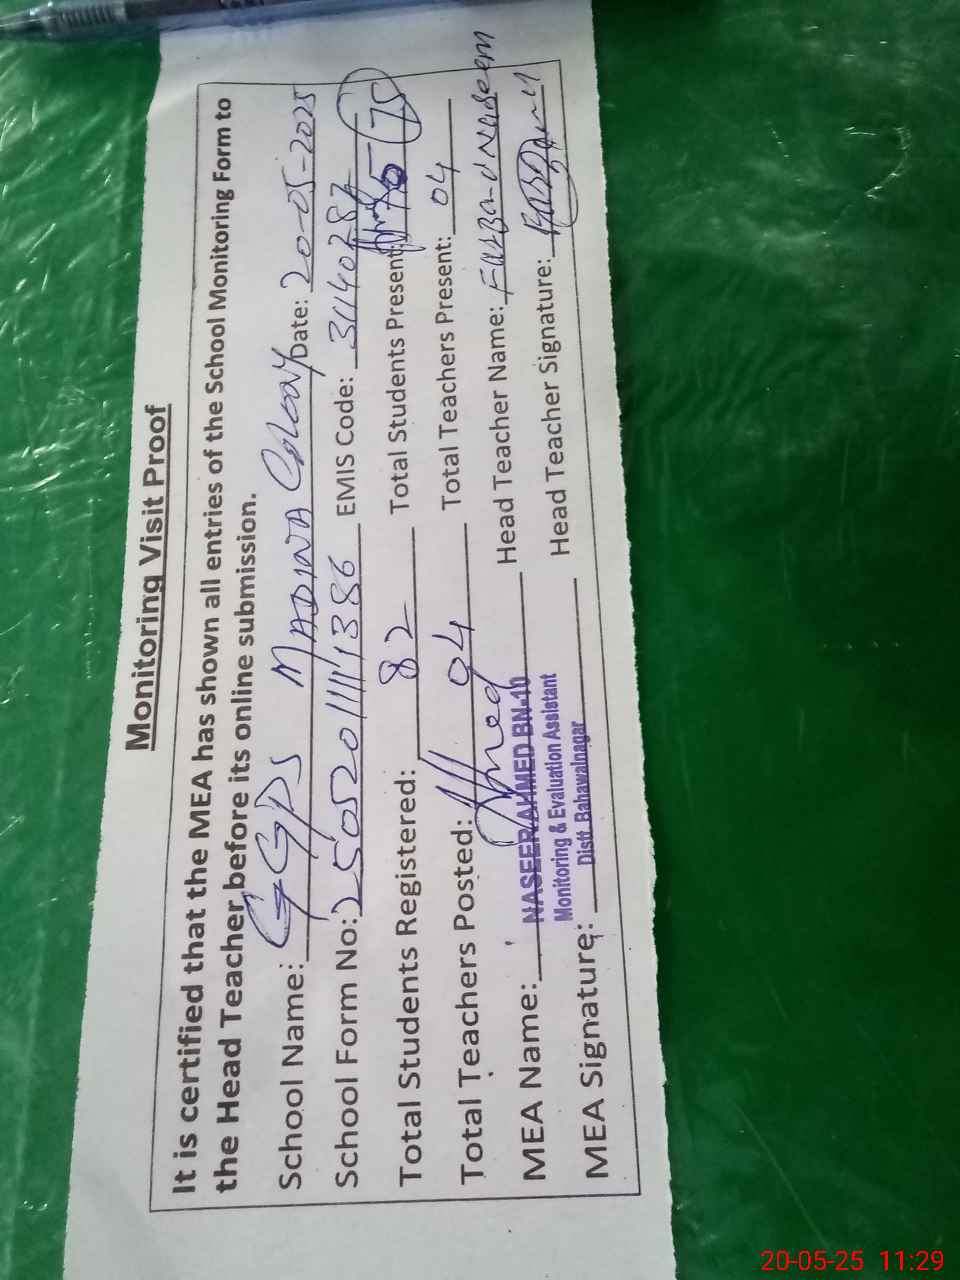 Monitoring Visit Proof
It is certified that the MEA has shown all entries of the School Monitoring Form to
the Head Teacher before its online submission.
School Name: GGPS MADINA Colony Date: 20-05-2025
School Form No: EMIS Code: 31140287
Total Students Registered: 82 Total Students Present: 75
Total Teachers Posted: 04 Total Teachers Present: 04
MEA Name: NASEER AHMED BN-10 Head Teacher Name: Naseem
Monitoring & Evaluation Assistant
MEA Signature: Distt. Bahawalnagar Head Teacher Signature:
20-05-25 11:29